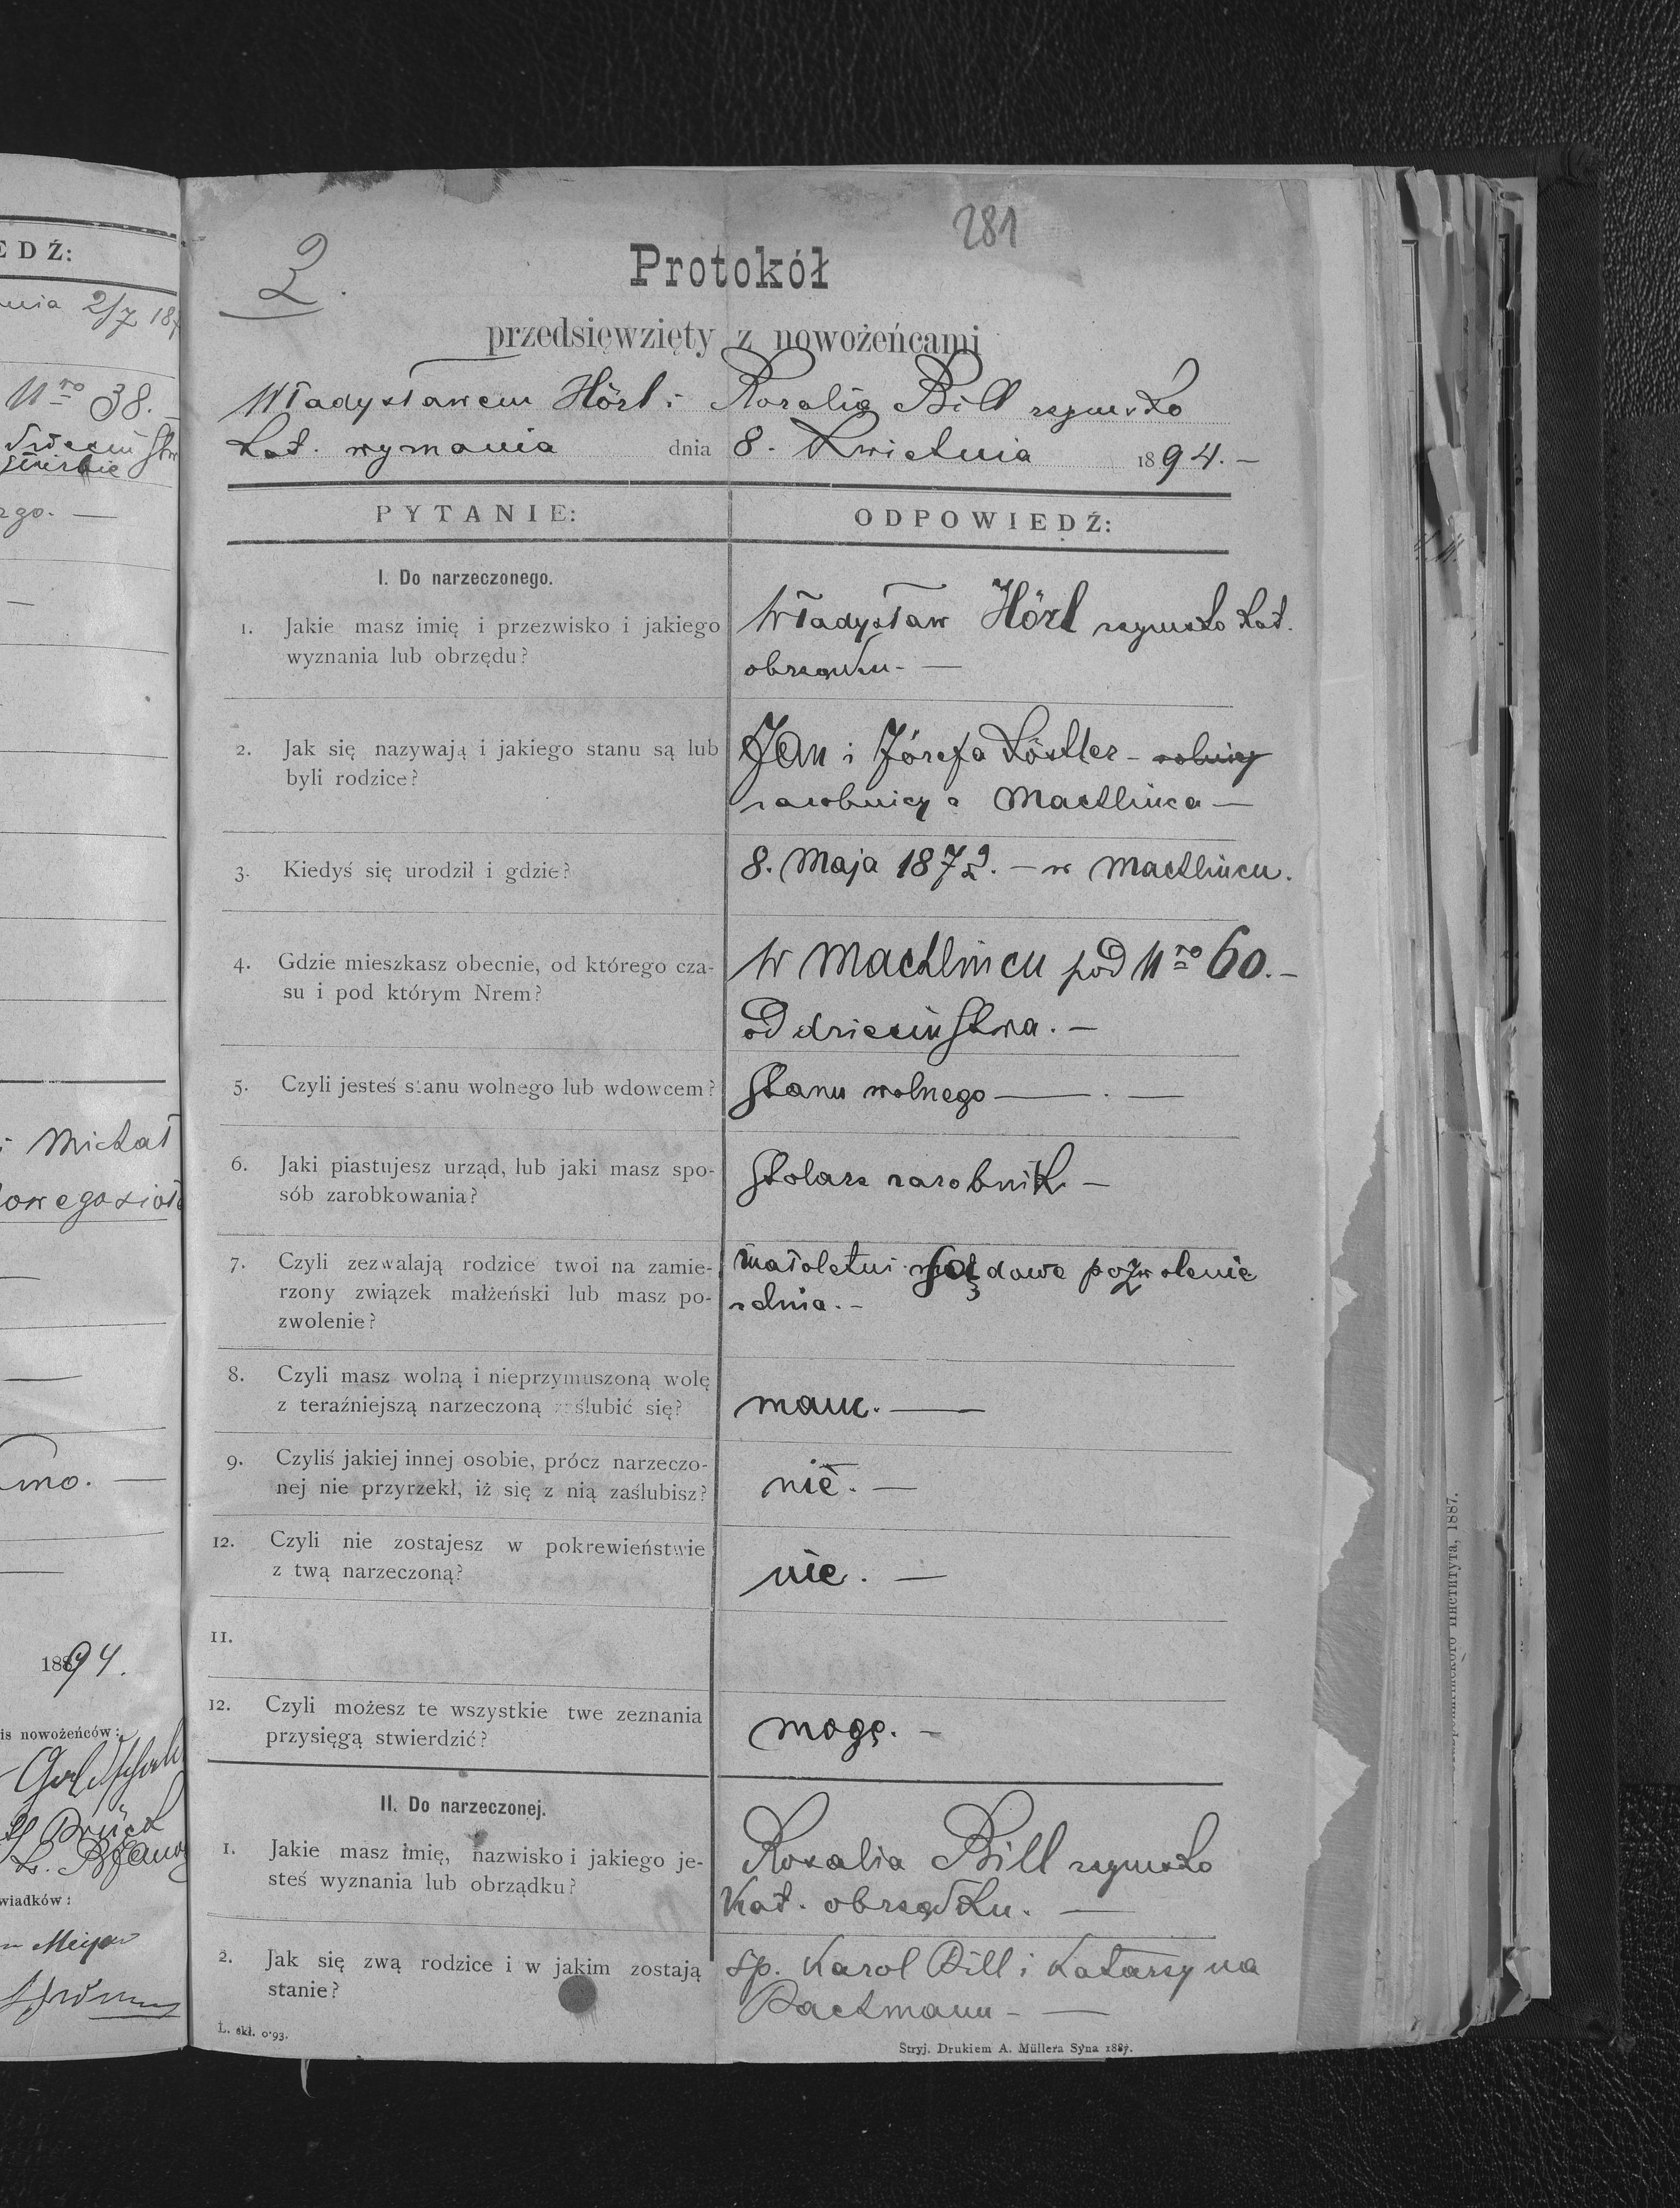 EDŹ:
2/7 18
Nro 38. —
rgo. —
i Michał
mo. —
1894.
is nowożeńców:
wiadków:
281
2.
Protokół
przedsięwzięty z nowożeńcami
Władysławem Hörl i Rozalią Bill rzymsko
kat. wyznania dnia 8. Kwietnia 1894. —
PYTANIE: ODPOWIEDŹ:
I. Do narzeczonego.
1. Jakie masz imię i przezwisko i jakiego
wyznania lub obrzędu?
Władysław Hörl rzymsko kat.
obrządku. —
2. Jak się nazywają i jakiego stanu są lub
byli rodzice?
Jan i Józefa — rolnicy
zarobnicy z Machlińca —
3. Kiedyś się urodził i gdzie?
8. Maja 1872. — w Machlińcu.
4. Gdzie mieszkasz obecnie, od którego cza-
su i pod którym Nrem?
W Machlińcu pod Nro 60. —
od dzieciństwa. —
5. Czyli jesteś stanu wolnego lub wdowcem?
stanu wolnego — . —
6. Jaki piastujesz urząd, lub jaki masz spo-
sób zarobkowania?
stolarz zarobnik —
7. Czyli zezwalają rodzice twoi na zamie-
rzony związek małżeński lub masz po-
zwolenie?
małoletni sądowe pozwolenie
z dnia. —
8. Czyli masz wolną i nieprzymuszoną wolę
z teraźniejszą narzeczoną zaślubić się?
mam. —
9. Czyliś jakiej innej osobie, prócz narzeczo-
nej nie przyrzekł, iż się z nią zaślubisz?
nie. —
12. Czyli nie zostajesz w pokrewieństwie
z twą narzeczoną?
nie. —
11.
12. Czyli możesz te wszystkie twe zeznania
przysięgą stwierdzić?
mogę. —
II. Do narzeczonej.
1. Jakie masz imię, nazwisko i jakiego je-
steś wyznania lub obrządku?
Rozalia Bill rzymsko
kat. obrządku. —
2. Jak się zwą rodzice i w jakim zostają
stanie?
sp. Karol Bill i Katarzyna
Bachmann — —
L. skł. 0·93.
Stryj. Drukiem A. Müllera Syna 1887.
Института, 1887.